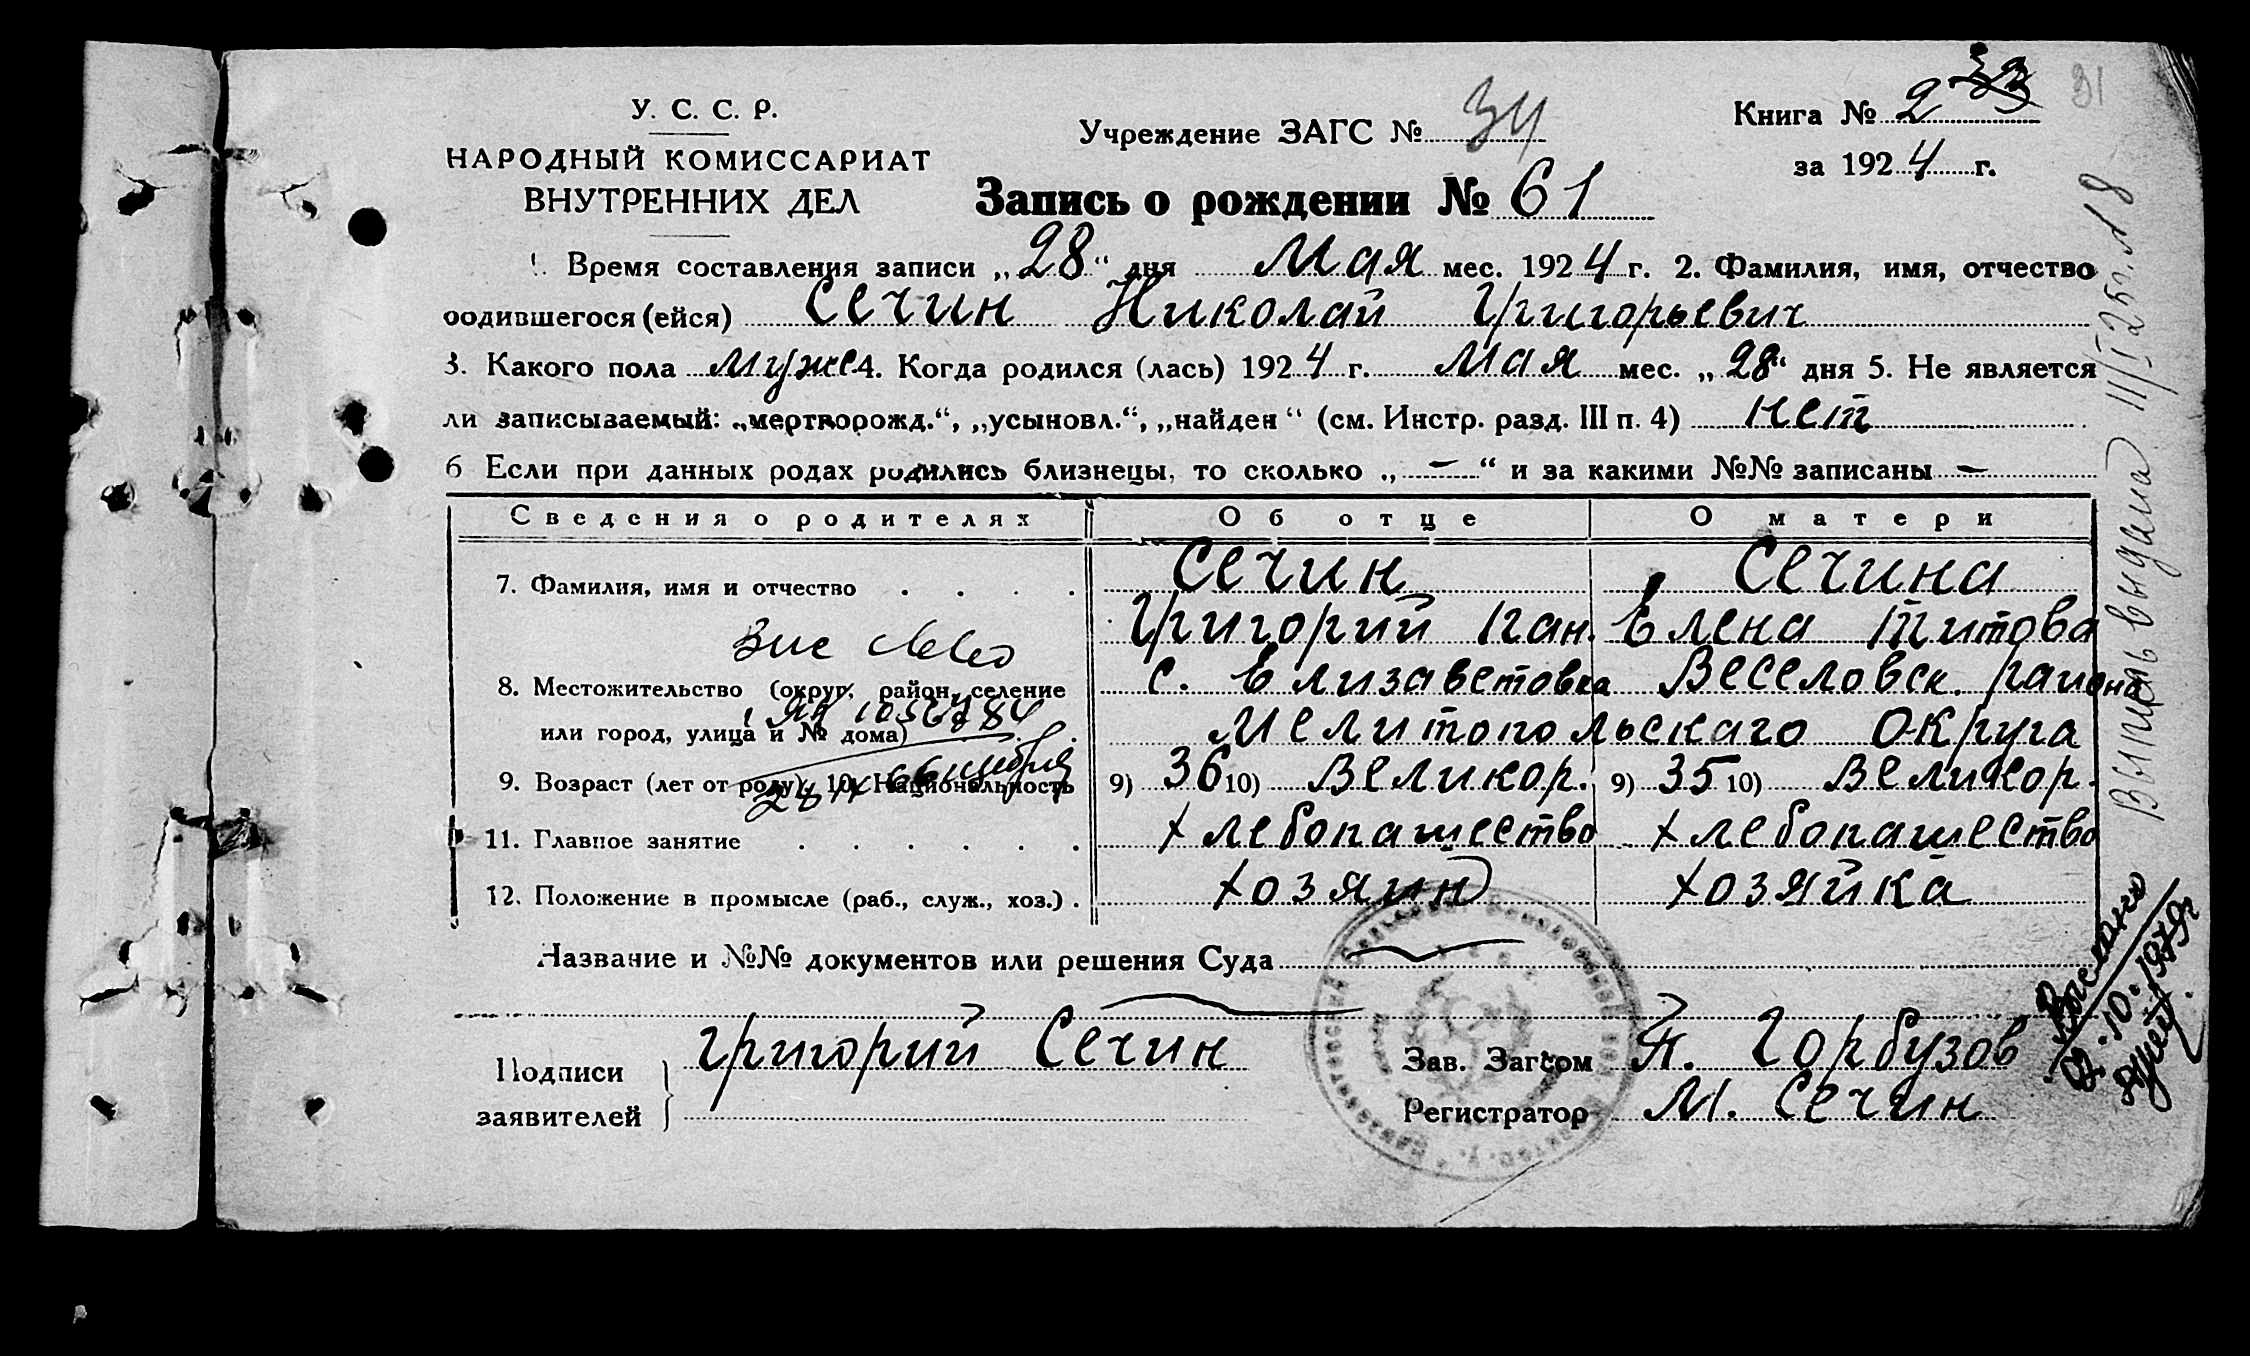 У. С. С. Р.
НАРОДНЫЙ КОМИССАРИАТ
ВНУТРЕННИХ ДЕЛ
Учреждение ЗАГС № 34
Книга № 2
31
за 1924 г.
Запись о рождении № 61
1. Время составления записи „28“ дня Мая мес. 1924 г. 2. Фамилия, имя, отчество
родившегося (ейся) Сечин Николай Григорьевич
3. Какого пола Мужс 4. Когда родился (лась) 1924 г. Мая мес. „28“ дня 5. Не является
ли записываемый: „мертворожд.“, „усыновл.“, „найден“ (см. Инстр. разд. III п. 4) нет
6 Если при данных родах родились близнецы, то сколько „—“ и за какими №№ записаны —
Сведения о родителях Об отце О матери
7. Фамилия, имя и отчество . . . . Сечин Сечина
Григорий Пан. Елена Титова
8. Местожительство (округ, район, селение с. Елизаветовка Веселовск. района
или город, улица и № дома) Мелитопольскаго Округа
9. Возраст (лет от роду). 10. Национальность 9) 36 10) Великор. 9) 35 10) Великор.
11. Главное занятие . . . . . . Хлебопашество Хлебопашество
12. Положение в промысле (раб., служ., хоз.) . Хозяин Хозяйка
Название и №№ документов или решения Суда
Подписи
заявителей
Григорий Сечин
Зав. Загсом П. Горбузов
Регистратор М. Сечин
Выпись выдана 11/I 25 г. № 8
Выслано
10.1979г